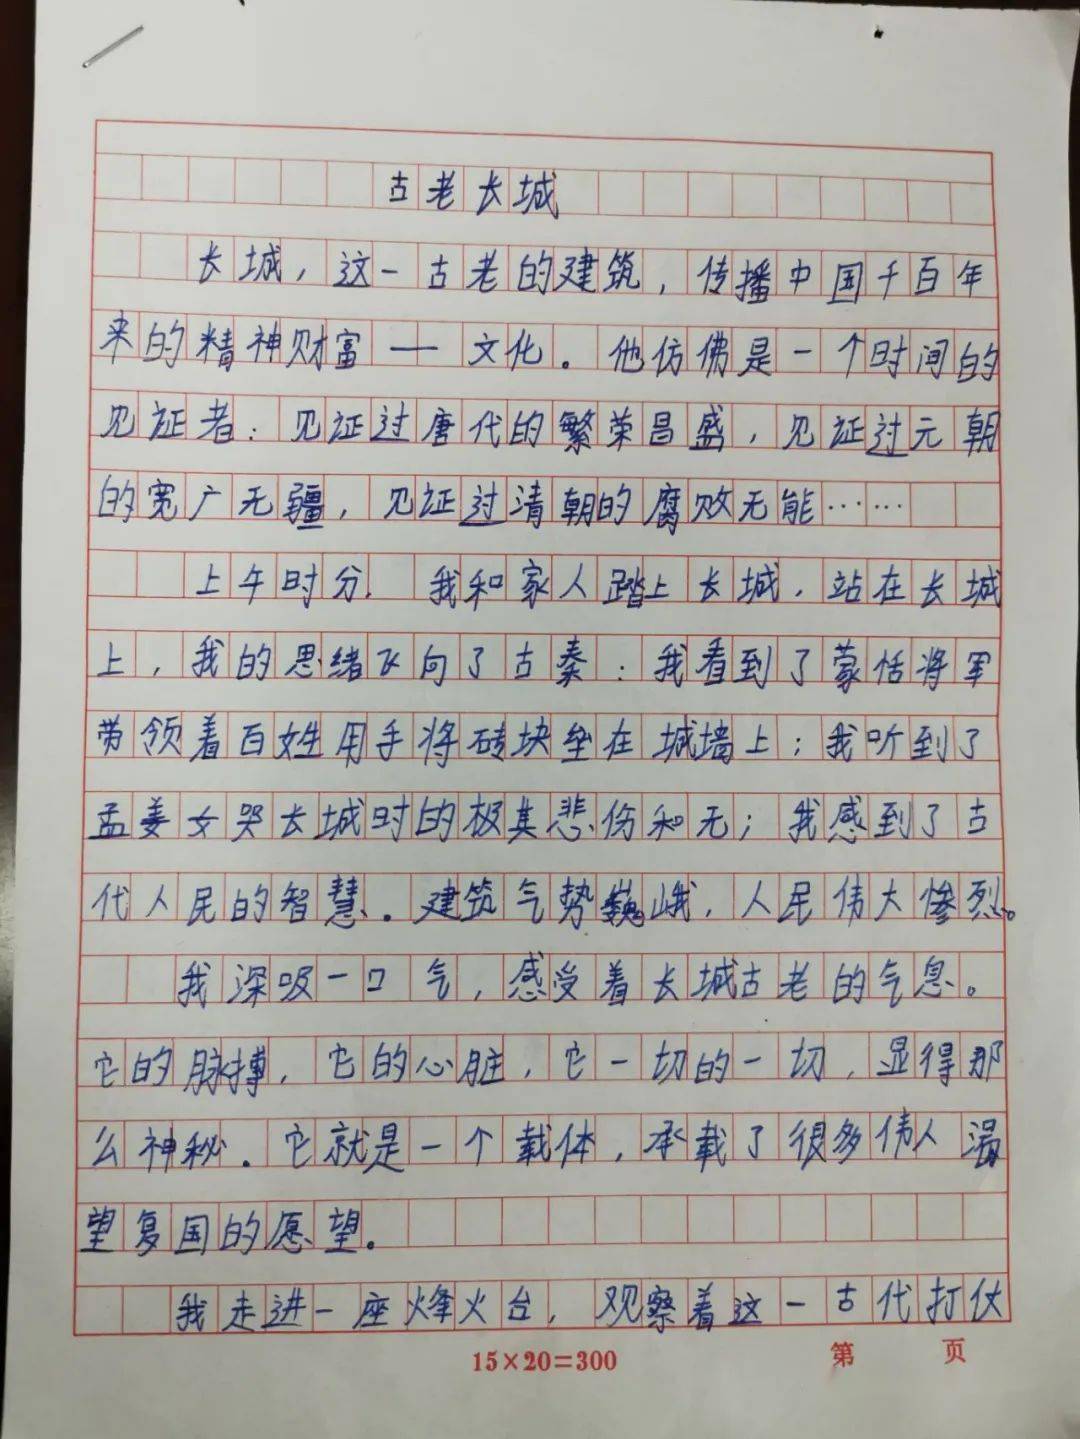 古老长城
长城，这一古老的建筑，传播中国千百年
来的精神财富——文化。他仿佛是一个时间的
见证者：见证过唐代的繁荣昌盛，见证过元朝
的宽广无疆，见证过清朝的腐败无能……
上午时分，我和家人踏上长城，站在长城
上，我的思绪飞向了古秦：我看到了蒙恬将军
带领着百姓用手将砖块垒在城墙上；我听到了
孟姜女哭长城时的极其悲伤和无；我感到了古
代人民的智慧。建筑气势巍峨，人民伟大惨烈。
我深吸一口气，感受着长城古老的气息。
它的脉搏，它的心脏，它一切的一切，显得那
么神秘。它就是一个载体，承载了很多伟人渴
望复国的愿望。
我走进一座烽火台，观察着这一古代打仗
15×20=300
第 页